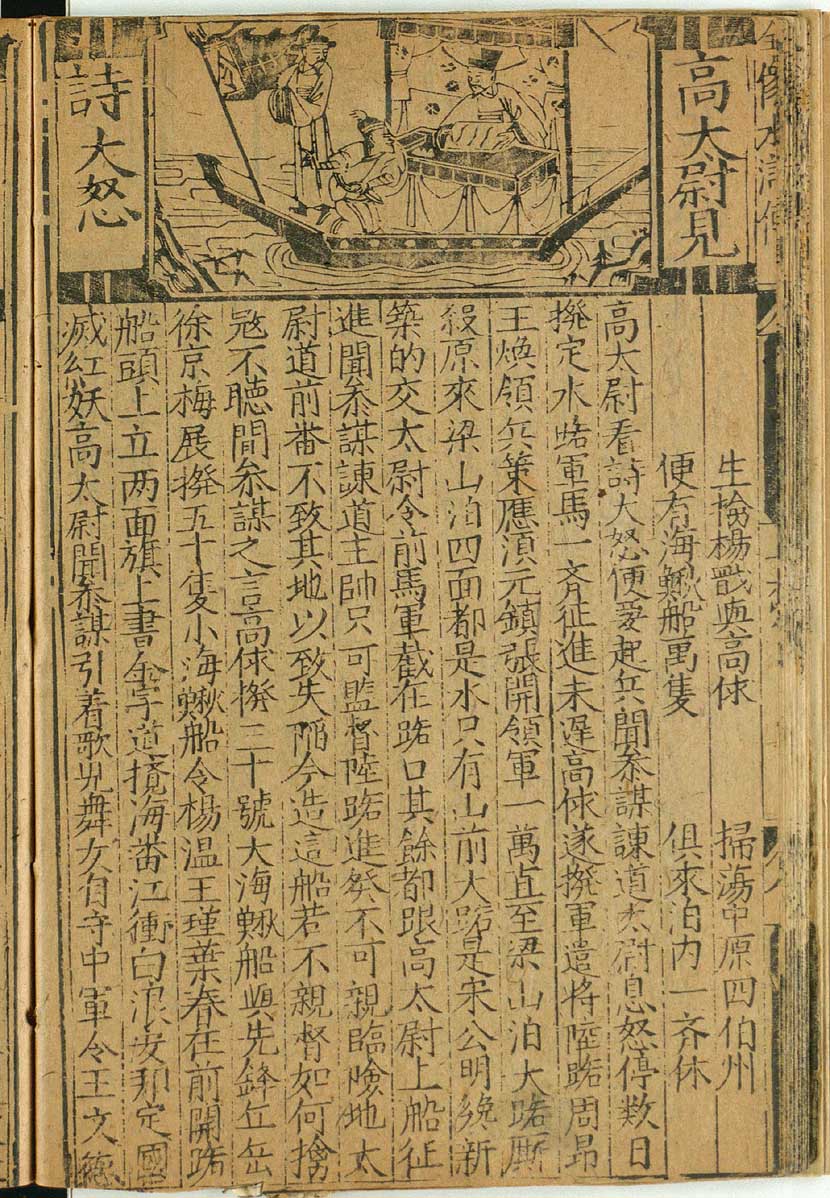 全像水滸傳
高太尉見
詩大怒
生擒楊戩與高俅　掃蕩中原四伯州
便有海鰍船萬隻　俱來泊內一齊休
高太尉看詩大怒便要起兵聞叅謀諫道太尉息怒停数日
撥定水路軍馬一齐征進未遲高俅遂撥軍遣將陸路周昂
王煥領兵策應湏元鎮張開領軍一萬直至梁山泊大路厮
殺原來梁山泊四面都是水只有山前大路是宋公明綫新
築的交太尉令前馬軍截在路口其餘都跟高太尉上船征
進聞叅謀諫道主帥只可監督陸路進発不可親臨險地太
尉道前番不致其地以致失陷今造這船若不親督如何擒
冦不聽聞叅謀之言高俅撥三十號大海鰍船與先鋒丘岳
徐京梅展撥五十隻小海鰍船令楊温王瑾葉春在前開路
船頭上立两面旗上書金字道攪海番江衝白浪安邦定國
滅紅妖高太尉聞叅謀引着歌兒舞女自守中軍令王文德